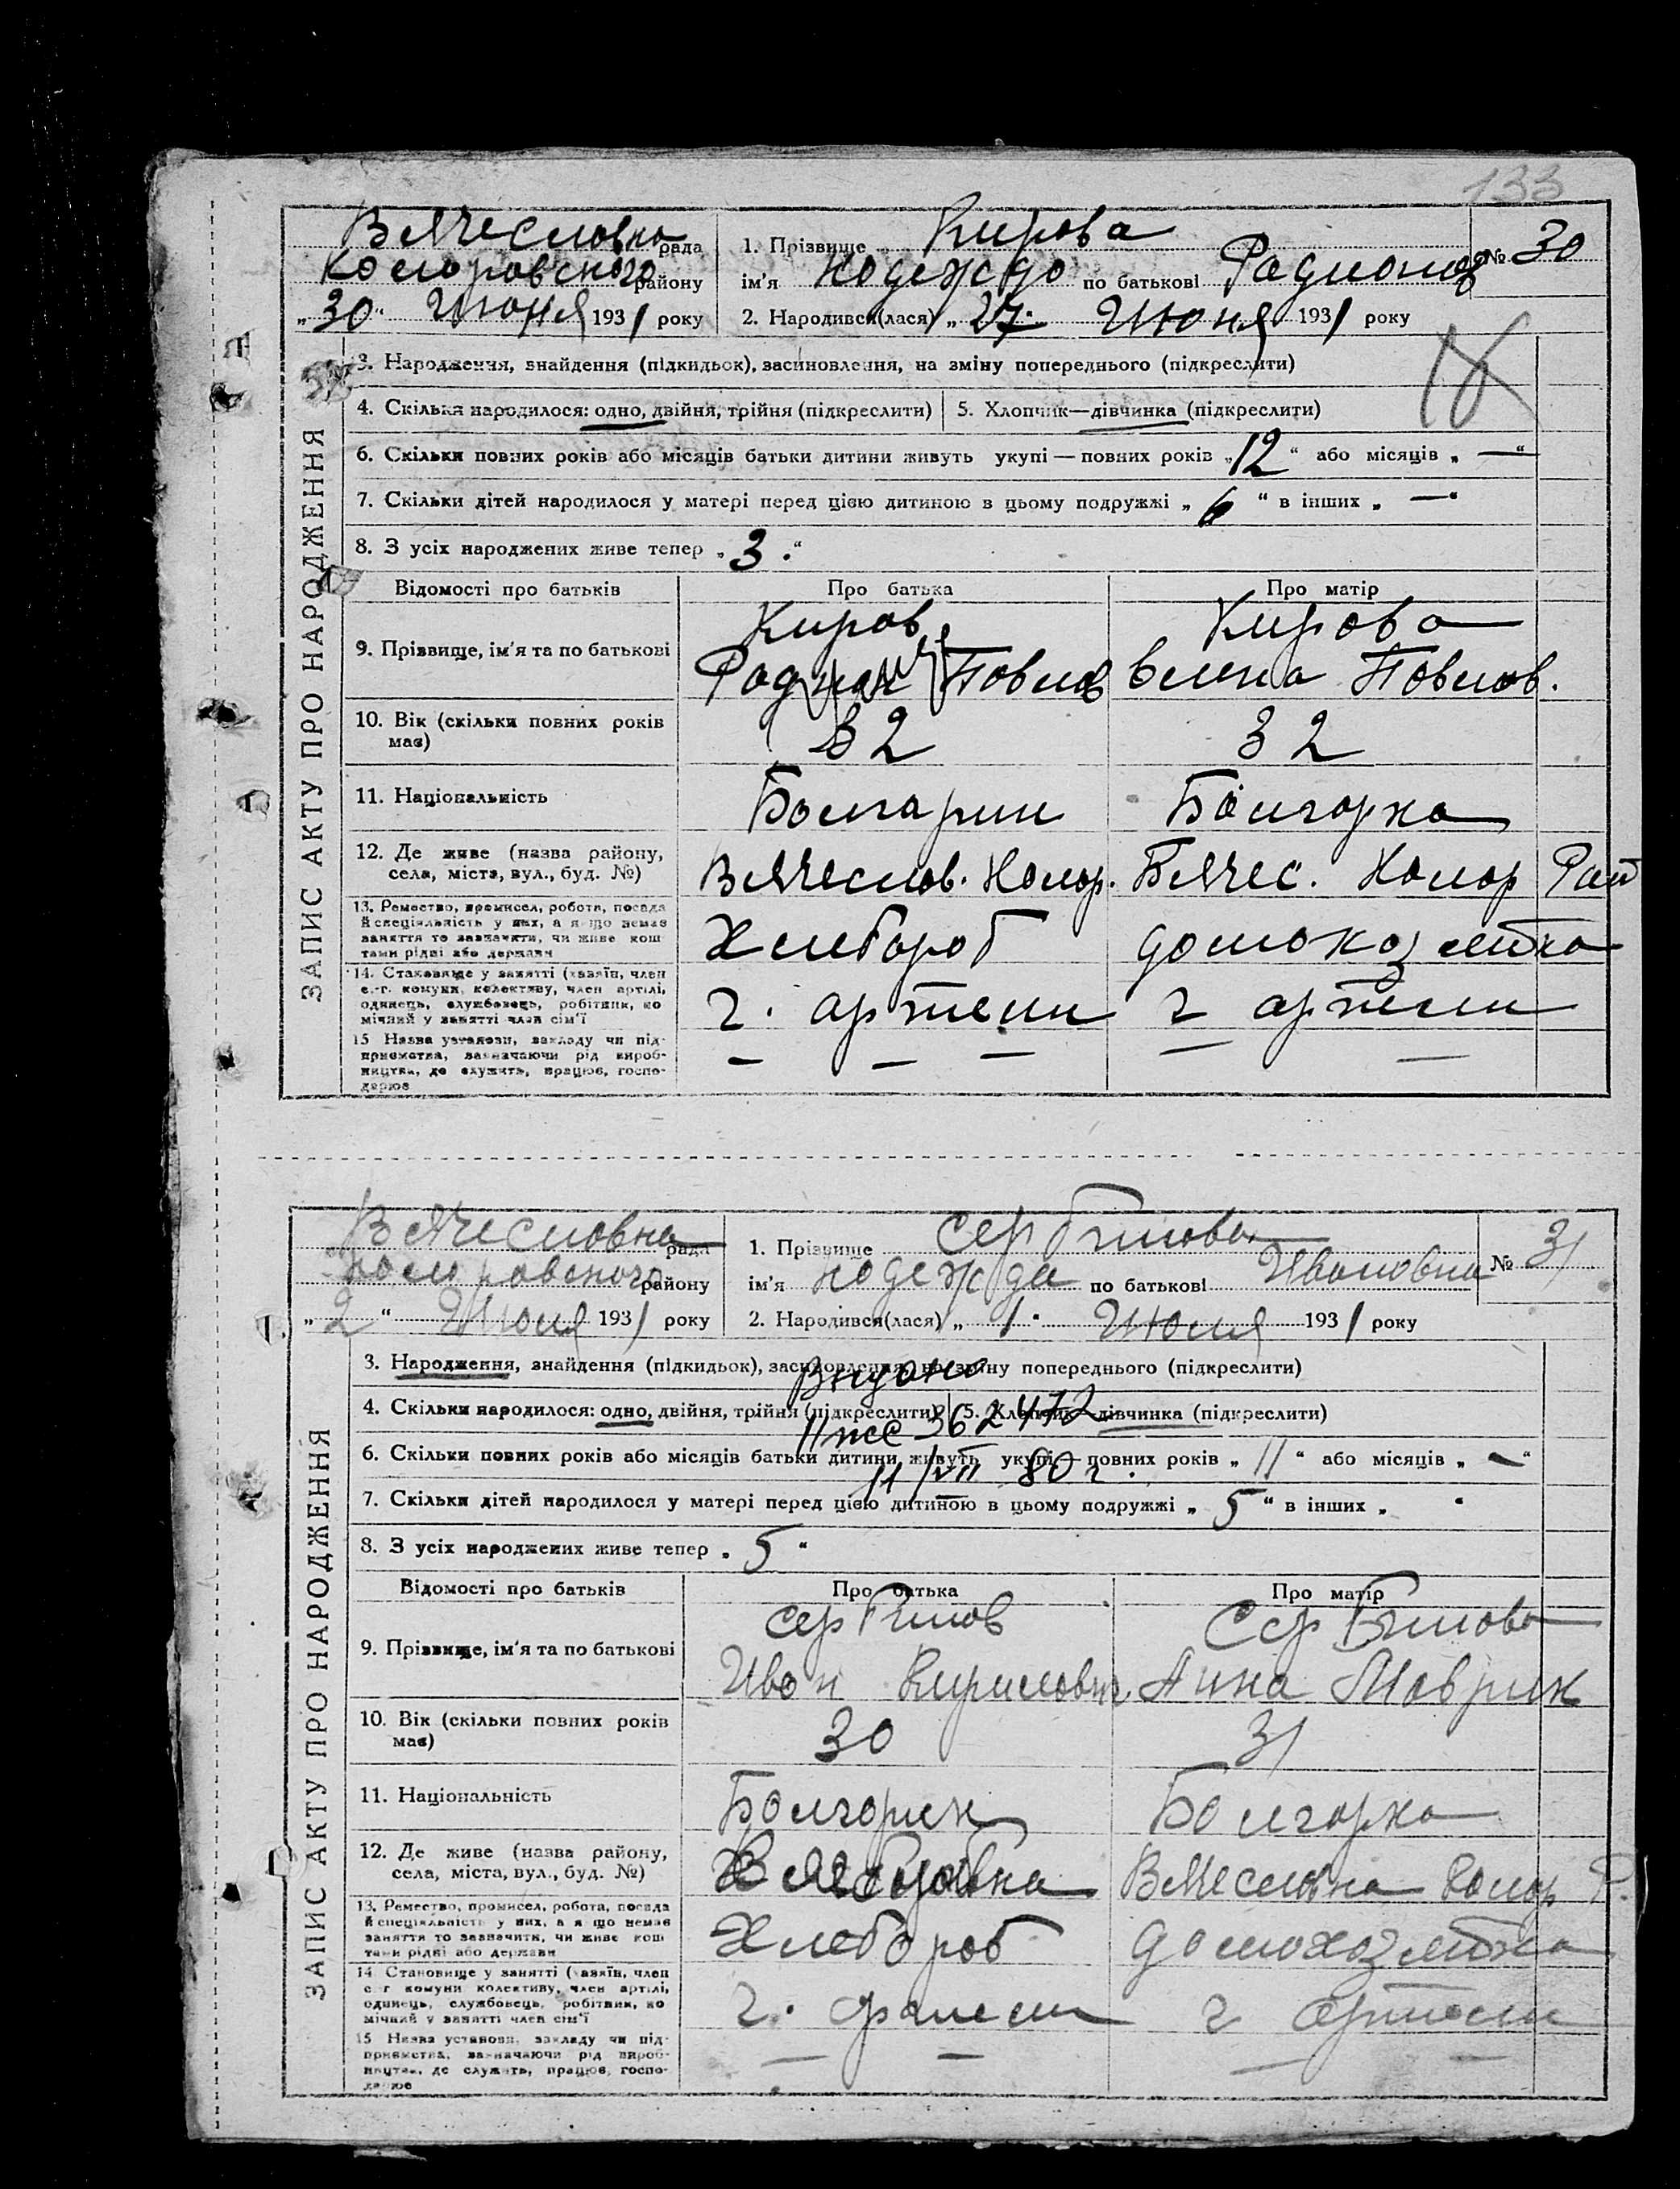 133
Вячесловка рада
Коларовского району
„30“ Июня 1931 року
1. Прізвище Кирова
ім'я Надежда по батькові Радионов
№ 30
2. Народився(лася) „27“ Июня 1931 року
ЗАПИС АКТУ ПРО НАРОДЖЕННЯ
3. Народження, знайдення (підкидьок), засиновлення, на зміну попереднього (підкреслити)
4. Скільки народилося: одно, двійня, трійня (підкреслити) 5. Хлопчик—дівчинка (підкреслити)
6. Скільки повних років або місяців батьки дитини живуть укупі — повних років „12“ або місяців „—“
7. Скільки дітей народилося у матері перед цією дитиною в цьому подружжі „6“ в інших „—“
8. З усіх народжених живе тепер „3.“
Відомості про батьків Про батька Про матір
9. Прізвище, ім'я та по батькові Киров Кирова
Радион Повлов Елена Повлов.
10. Вік (скільки повних років має) 32 32
11. Національність Болгарин Болгорка
12. Де живе (назва району, села, міста, вул., буд. №) Вячеслов. Колор. Вячес. Колор Рай
13. Ремество, промисел, робота, посада й спеціяльність у них, а якщо немає заняття то зазначити, чи живе коштами рідні або держави Хлебороб домохозяйка
14. Становище у занятті (хазяїн, член с.-г. комуни, колективу, член артілі, одинець, службовець, робітник, помічний у занятті член сім'ї ч. артели ч артели
15 Назва установи, закладу чи підприємства, зазначаючи рід виробництва, де служить, працює, господарює — — — — —
Вячесловка рада
Коларовского району
„2“ Июля 1931 року
1. Прізвище Сербинова
ім'я Надежда по батькові Ивановна
№ 31
2. Народився(лася) „1.“ Июля 1931 року
ЗАПИС АКТУ ПРО НАРОДЖЕННЯ
3. Народження, знайдення (підкидьок), засиновлення, на зміну попереднього (підкреслити)
4. Скільки народилося: одно, двійня, трійня (підкреслити) 5. Хлопчик—дівчинка (підкреслити)
362472
6. Скільки повних років або місяців батьки дитини живуть укупі — повних років „11“ або місяців „—“
11/VII 80 г.
7. Скільки дітей народилося у матері перед цією дитиною в цьому подружжі „5“ в інших „ “
8. З усіх народжених живе тепер „5“
Відомості про батьків Про батька Про матір
9. Прізвище, ім'я та по батькові Сербинов Сербинова
Иван Кирилович Анна Маврик
10. Вік (скільки повних років має) 30 31
11. Національність Болгорин Болгорка
12. Де живе (назва району, села, міста, вул., буд. №) Вячесловка Вячесловка Колор Р.
13. Ремество, промисел, робота, посада й спеціяльність у них, а якщо немає заняття то зазначити, чи живе коштами рідні або держави Хлебороб домохозяйка
14 Становище у занятті (хазяїн, член с-г комуни колективу, член артілі, одинець, службовець, робітник, помічний у занятті член сім'ї ч. артели ч артели
15 Назва установи, закладу чи підприємства, зазначаючи рід виробництва, де служить, працює, господарює — — — —